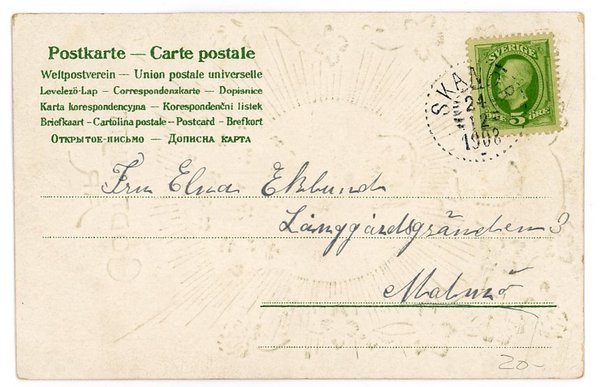 Postkarte — Carte postale
Weltpostverein — Union postale universelle
Levelező-Lap — Correspondenzkarte — Dopisnice
Karta korespondencyjna — Korespondenční lístek
Briefkaart — Cartolina postale — Postcard — Brefkort
Открытое письмо — Дописна карта
SVERIGE
5 ÖRE
SKAN
24
12
1903
Fru Elna Eklundh
Långgårdsgränden 3
Malmö
20-